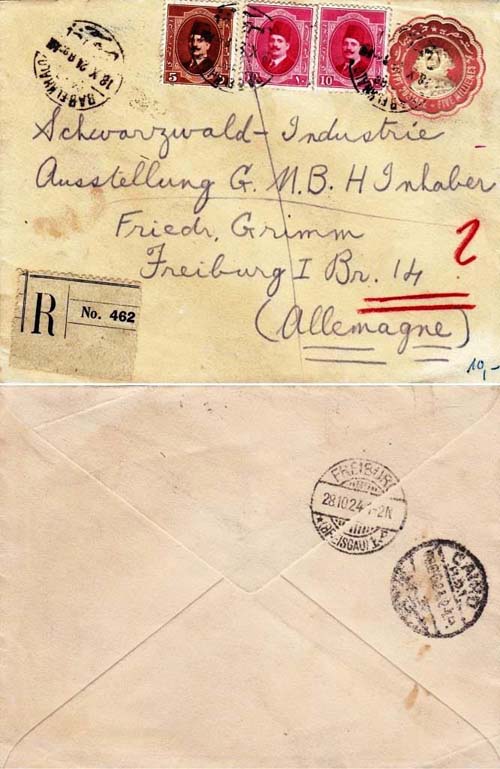 BAB EL KHALQ
18 X 24
5
10
10
١٠
FIVE MILLIEMES
Schwarzwald-Industrie
Ausstellung G. M. B. H Inhaber
Friedr. Grimm
Freiburg I Br. 14
(Allemagne)
2
R No. 462
10,-
FREIBURG
28.10.24 1-2N
(BREISGAU)
CAIRO